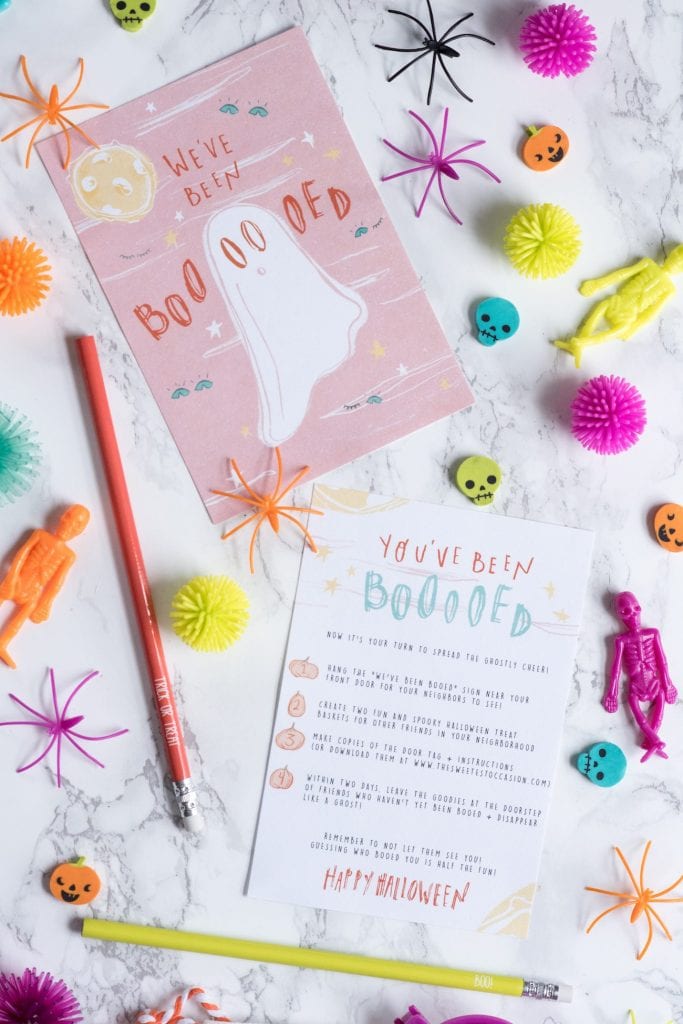 WE'VE
BEEN
BOOOOOED
YOU'VE BEEN
BOOOOED
NOW IT'S YOUR TURN TO SPREAD THE GHOSTLY CHEER!
1
HANG THE "WE'VE BEEN BOOED" SIGN NEAR YOUR
FRONT DOOR FOR YOUR NEIGHBORS TO SEE!
2
CREATE TWO FUN AND SPOOKY HALLOWEEN TREAT
BASKETS FOR OTHER FRIENDS IN YOUR NEIGHBORHOOD
3
MAKE COPIES OF THE DOOR TAG + INSTRUCTIONS
(OR DOWNLOAD THEM AT WWW.THESWEETESTOCCASION.COM)
4
WITHIN TWO DAYS, LEAVE THE GOODIES AT THE DOORSTEP
OF FRIENDS WHO HAVEN'T YET BEEN BOOED + DISAPPEAR
LIKE A GHOST!
REMEMBER TO NOT LET THEM SEE YOU!
GUESSING WHO BOOED YOU IS HALF THE FUN!
HAPPY HALLOWEEN
TRICK OR TREAT
BOO!